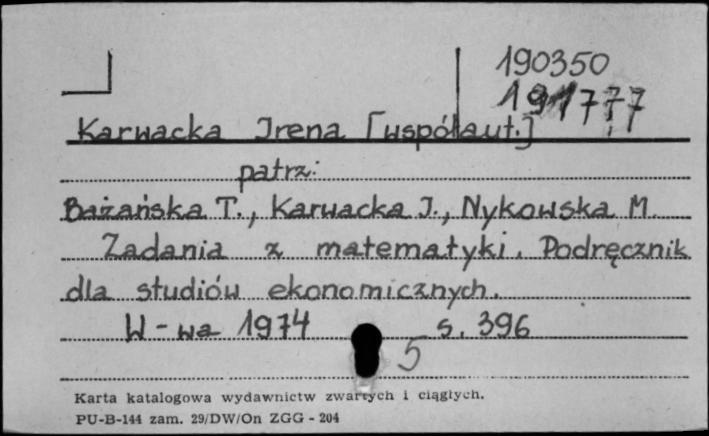 190350
191777
Karwacka Irena [współaut.]
patrz:
Bażańska T., Karwacka I., Nykowska M.
Zadania z matematyki. Podręcznik
dla studiów ekonomicznych.
W-wa 1974 s. 396
5
Karta katalogowa wydawnictw zwartych i ciągłych.
PU-B-144 zam. 29/DW/On ZGG - 204